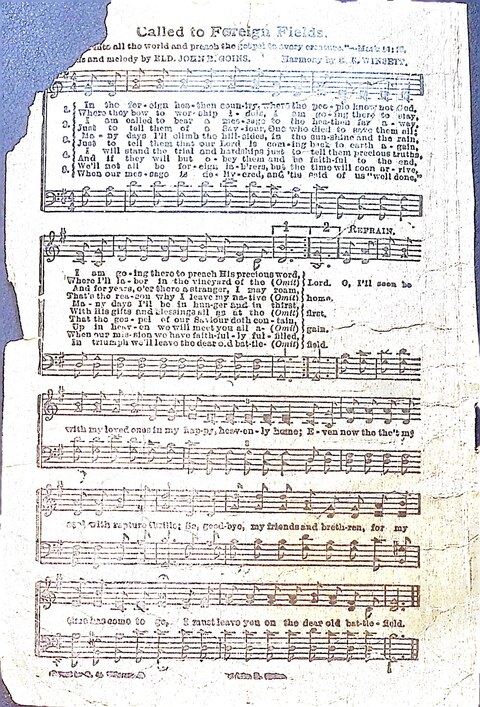 Called to Foreign Fields.
into all the world and preach the gospel to every creature."
and melody by ELD. JOHN R. GOINS. Harmony by WINSETT.
1. In the for-eign hea-then coun-try, where the peo-ple know not God,
Where they bow to wor-ship i-dols, I am go-ing there to stay,
2. I am called to bear a mes-sage to the hea-then far a-way,
Just to tell them of a Sav-iour, One who died to save them all;
3. Ma-ny days I'll climb the hill-sides, in the sun-shine and the rain,
Just to tell them that our Lord is com-ing back to earth a-gain,
4. I will stand the trial and hardships just to tell them precious truths,
And if they will but o-bey them and be faith-ful to the end,
5. We'll not all be for-eign la-b'rers, but the time will soon ar-rive,
When our mes-sage is de-liv-ered, and 'tis said of us "well done,"
1 2 REFRAIN.
I am go-ing there to preach His precious word,
Where I'll la-bor in the vineyard of the (Omit) Lord. O, I'll soon be
And for years, o'er there a stranger, I may roam,
That's the rea-son why I leave my na-tive (Omit) home.
Ma-ny days I'll be in hun-ger and in thirst,
With his gifts and blessings all as at the (Omit) first.
That the gos-pel of our Saviour doth con-tain,
Up in heav-en we will meet you all a-(Omit) gain.
When our mis-sion we have faith-ful-ly ful-filled,
In triumph we'll leave the dear old bat-tle-(Omit) field.
with my loved ones in my hap-py, heav-en-ly home; E-ven now the tho't my
soul with rapture thrills; So, good-bye, my friends and breth-ren, for my
time has come to go, I must leave you on the dear old bat-tle-field.